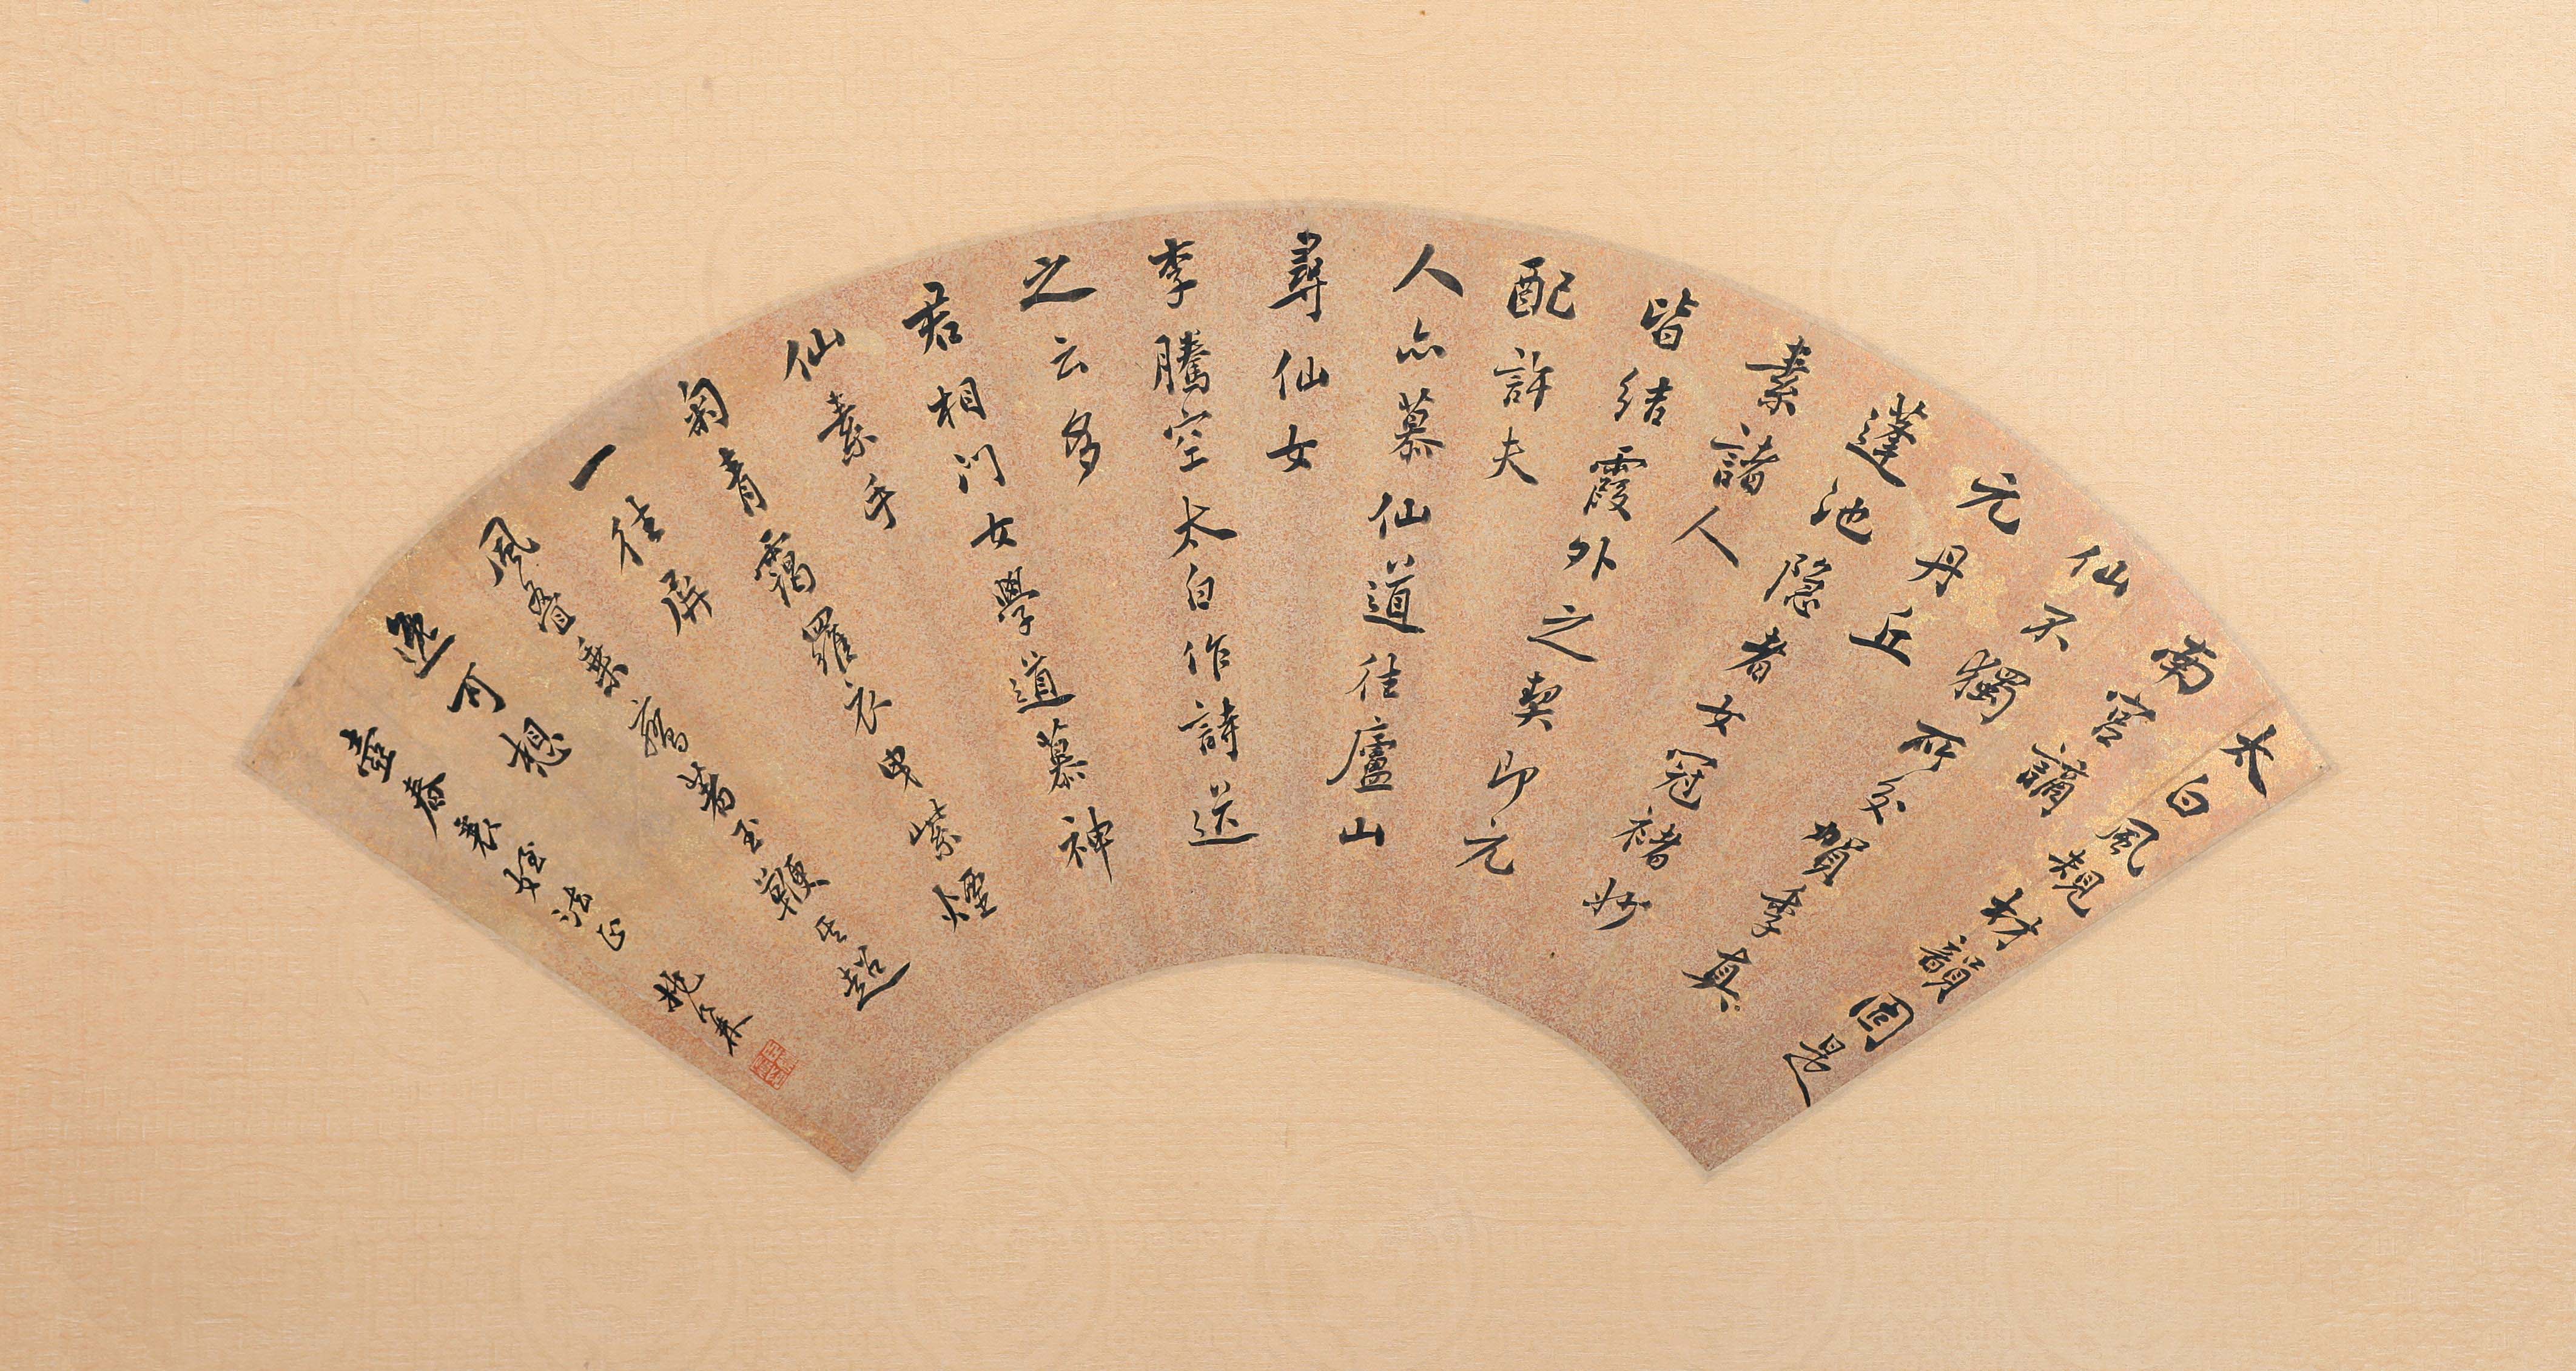 太白風規材韻固是
南宮謫
仙不獨所交賀季真
元丹丘
蓬池隱者女冠褚妙
素諸人
皆結霞外之契即元
配許夫
人亦慕仙道往廬山
尋仙女
李騰空太白作詩送
之云多
君相門女學道慕神
仙素手
匊青靄羅衣曳紫煙
一往屏
風疊乘鸞著玉鞭其超
逸可想
壺春老姪法正